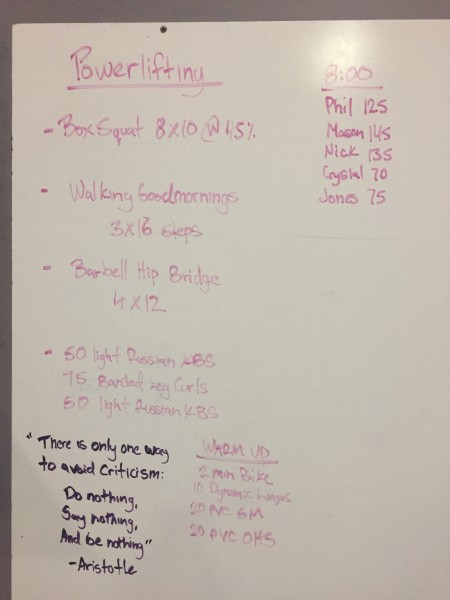 Powerlifting
- Box Squat 8x10 @ 45%
- Walking Goodmornings
3x16 steps
- Barbell Hip Bridge
4x12
- 50 light Russian KBS
75 Banded Leg Curls
50 light Russian KBS
8:00
Phil 125
Mason 145
Nick 135
Crystal 70
Jones 75
"There is only one way
to avoid Criticism:
Do nothing,
Say nothing,
And be nothing"
-Aristotle
WARM UP
2 min Bike
10 Dynamic Lunges
20 PVC GM
20 PVC OHS